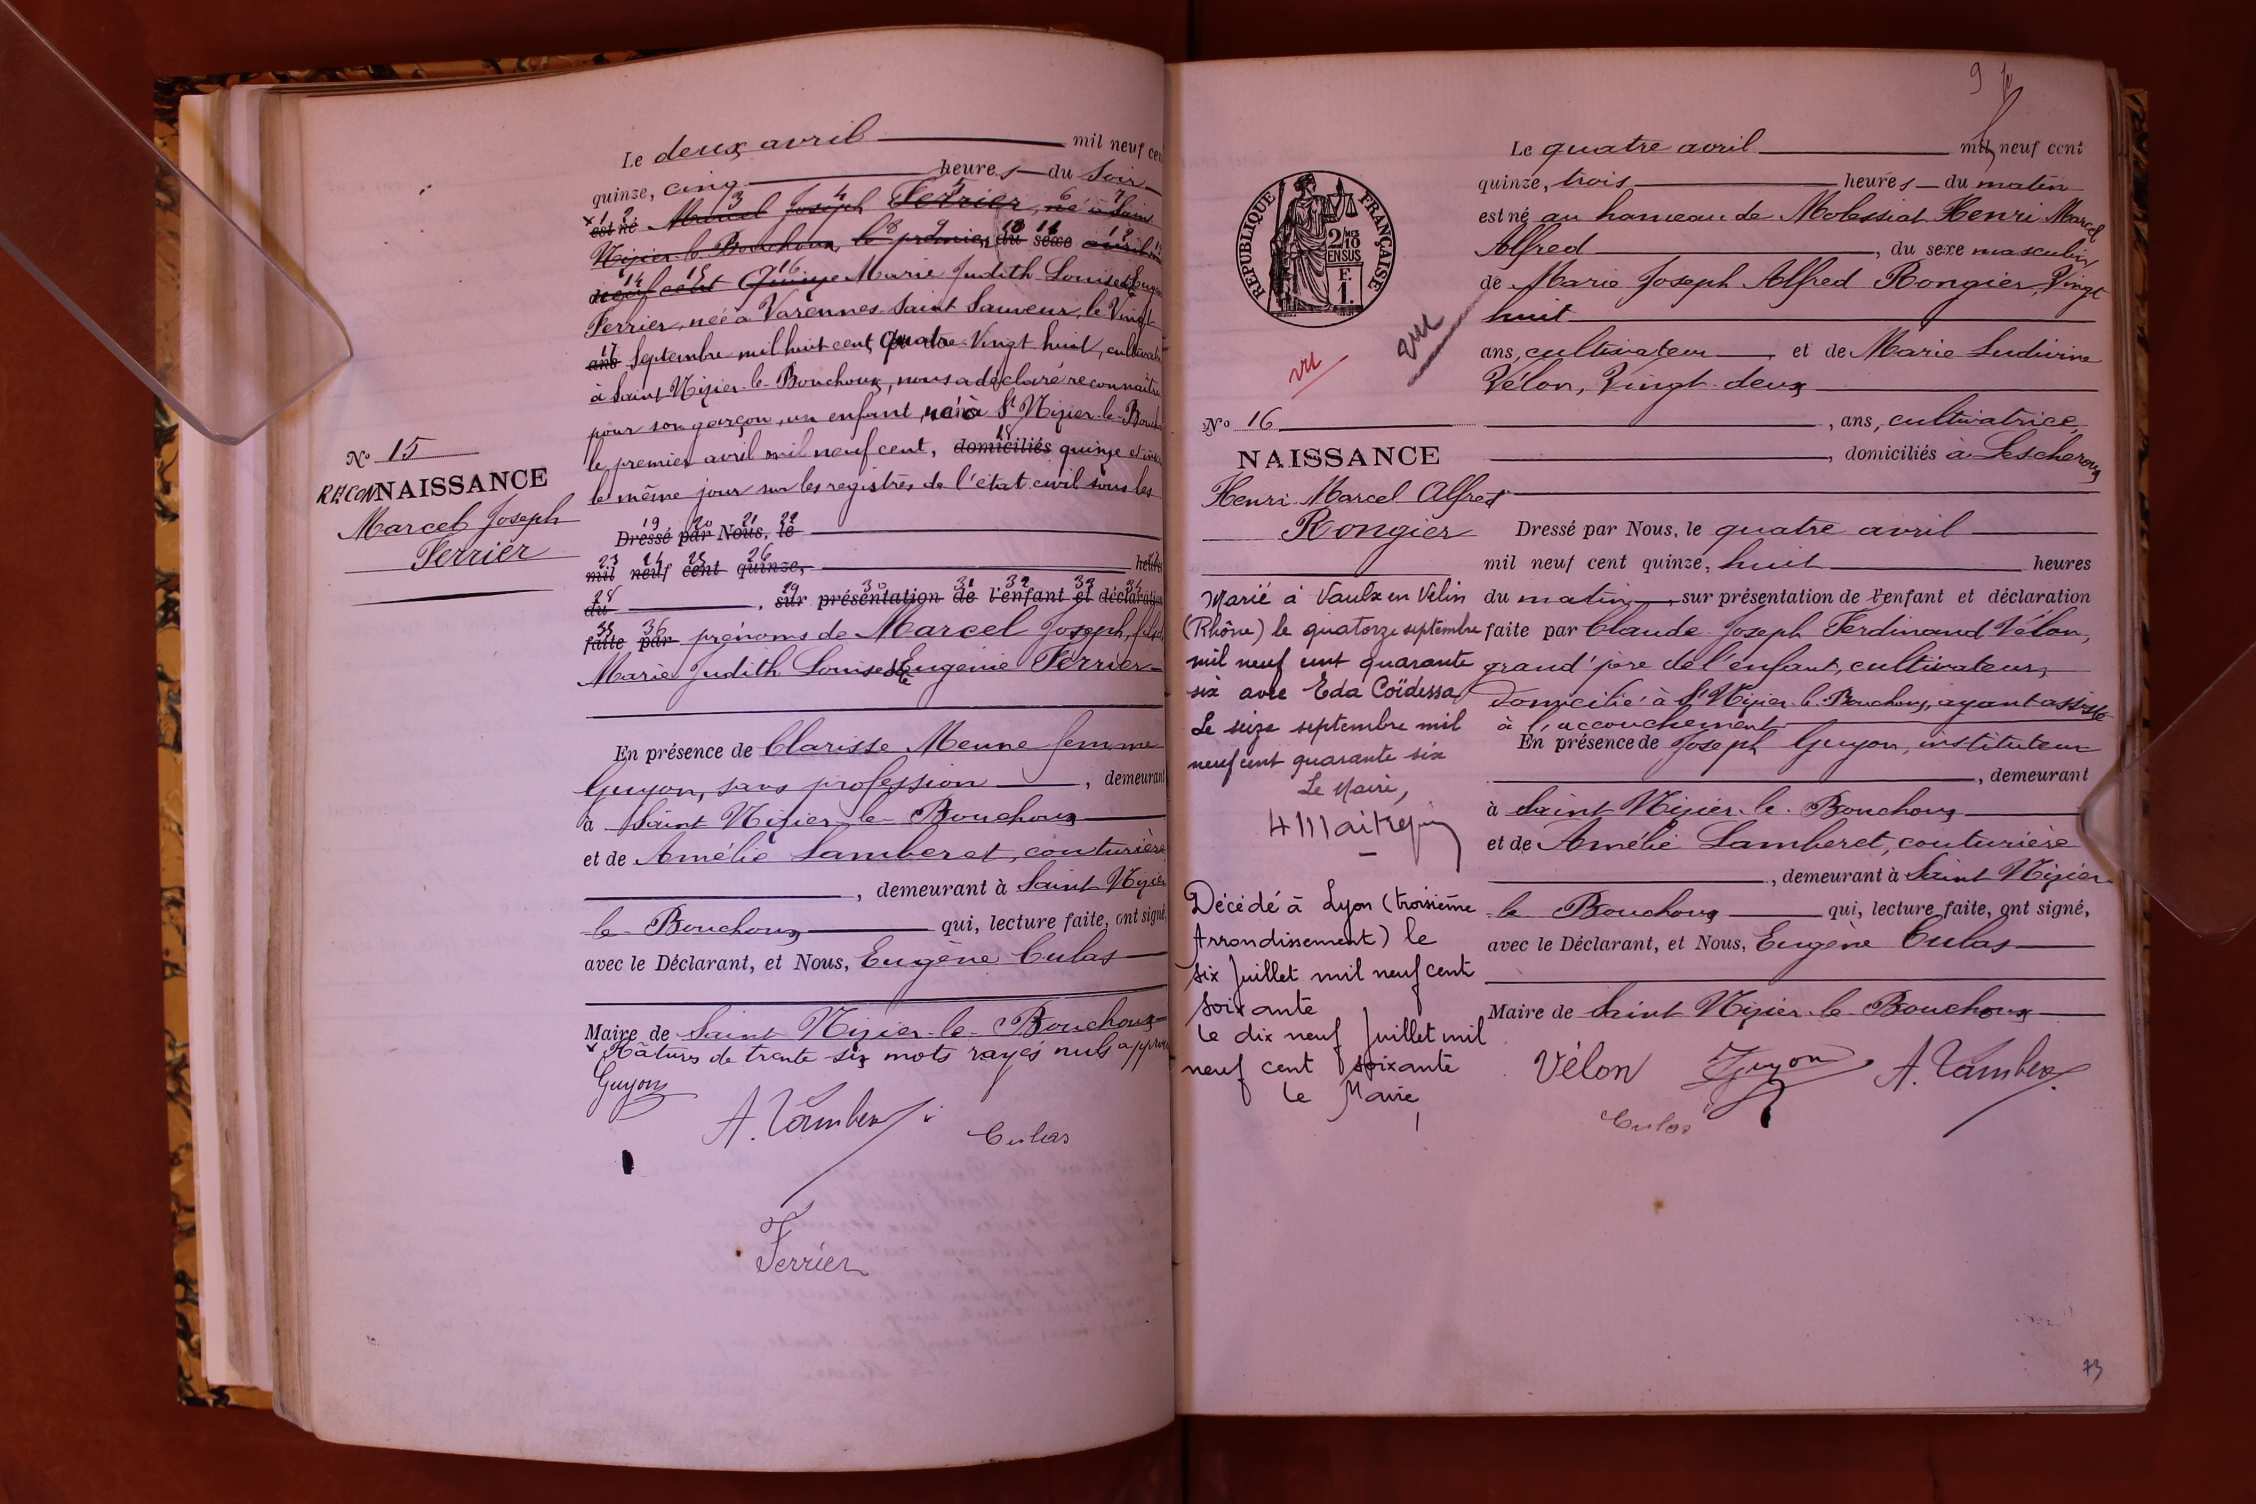 Le deux avril mil neuf cen
quinze, cinq heures du soir
x est né Marcel Joseph Ferrier, né à Saint
Nizier-le-Bouchoux le premier du sexe avril mil
neuf cent Quinze Marie Judith Louise Ste Eugénie
Ferrier, née à Varennes Saint Sauveur, le Vingt
ans Septembre mil huit cent Quatre-Vingt huit, cultivatr
à Saint Nizier-le-Bouchoux, nous a déclaré reconnaître
pour son garçon, un enfant, né à St Nizier-le-Bouch
le premier avril mil neuf cent, domiciliés quinze et
le même jour sur les registres de l'état civil sous les
Dressé par Nous, le
mil neuf cent quinze, heures
du , sur présentation de l'enfant et déclaration
faite par prénoms de Marcel Joseph, fils de
Marie Judith Louise Ste Eugénie Ferrier
En présence de Clarisse Meune femme
Guyon, sans profession , demeurant
à Saint Nizier-le-Bouchoux
et de Amélie Lamberet, couturière
, demeurant à Saint Nizier
le Bouchoux qui, lecture faite, ont signé,
avec le Déclarant, et Nous, Eugène Culas
Maire de Saint Nizier-le-Bouchoux
x Ratures de trente-six mots rayés nuls approu
Guyon
A. Lamberet
Culas
Ferrier
No 15
RECONNAISSANCE
Marcel Joseph
Ferrier
9
REPUBLIQUE FRANÇAISE
2/10 MES
EN SUS
F.
1.
vu
vu
No 16
NAISSANCE
Henri Marcel Alfred
Rongier
Marié à Vaulx en Velin
(Rhône) le quatorze septembre
mil neuf cent quarante
six avec Eda Coïdessa
Le seize septembre mil
neuf cent quarante six
Le Maire,
Décédé à Lyon (troisième
Arrondissement) le
six Juillet mil neuf cent
soixante
Le dix neuf Juillet mil
neuf cent soixante
Le Maire,
Le quatre avril mil neuf cent
quinze, trois heures du matin
est né au hameau de Molessiat Henri Marcel
Alfred , du sexe masculin
de Marie Joseph Alfred Rongier, Vingt
huit
ans, cultivateur et de Marie Ludivine
Vélon, Vingt-deux
, ans, cultivatrice,
, domiciliés à Lescheroux
Dressé par Nous, le quatre avril
mil neuf cent quinze, huit heures
du matin, sur présentation de l'enfant et déclaration
faite par Claude Joseph Ferdinand Vélon,
grand'père de l'enfant, cultivateur,
domicilié à St Nizier-le-Bouchoux, ayant assisté
à l'accouchement
En présence de Joseph Guyon, instituteur
, demeurant
à Saint Nizier-le-Bouchoux
et de Amélie Lamberet, couturière
, demeurant à Saint Nizier-
le Bouchoux qui, lecture faite, ont signé,
avec le Déclarant, et Nous, Eugène Culas
Maire de Saint Nizier-le-Bouchoux
Vélon Guyon A. Lamberet
Culas
73